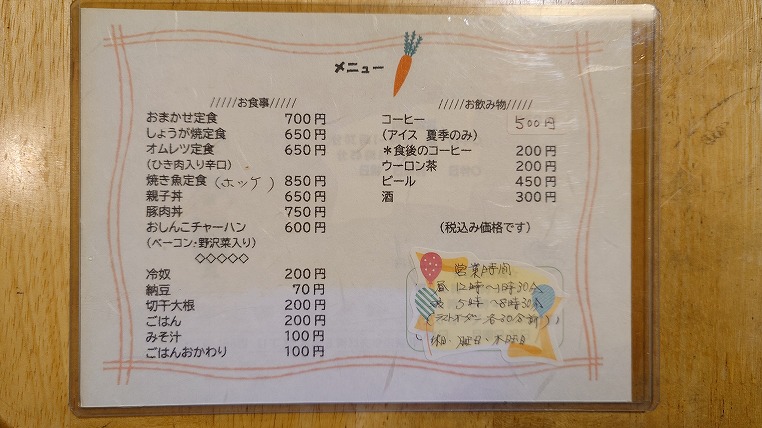 メニュー
/////お食事/////
おまかせ定食 700円
しょうが焼定食 650円
オムレツ定食 650円
(ひき肉入り辛口)
焼き魚定食 (ホッケ) 850円
親子丼 650円
豚肉丼 750円
おしんこチャーハン 600円
(ベーコン・野沢菜入り)
◇◇◇◇◇
冷奴 200円
納豆 70円
切干大根 200円
ごはん 200円
みそ汁 100円
ごはんおかわり 100円
/////お飲み物/////
コーヒー 500円
(アイス 夏季のみ)
*食後のコーヒー 200円
ウーロン茶 200円
ビール 450円
酒 300円
(税込み価格です)
営業時間
昼 12時～1時30分
夜 5時～8時30分
(ラストオーダー 各30分前)
休日・日曜日・木曜日